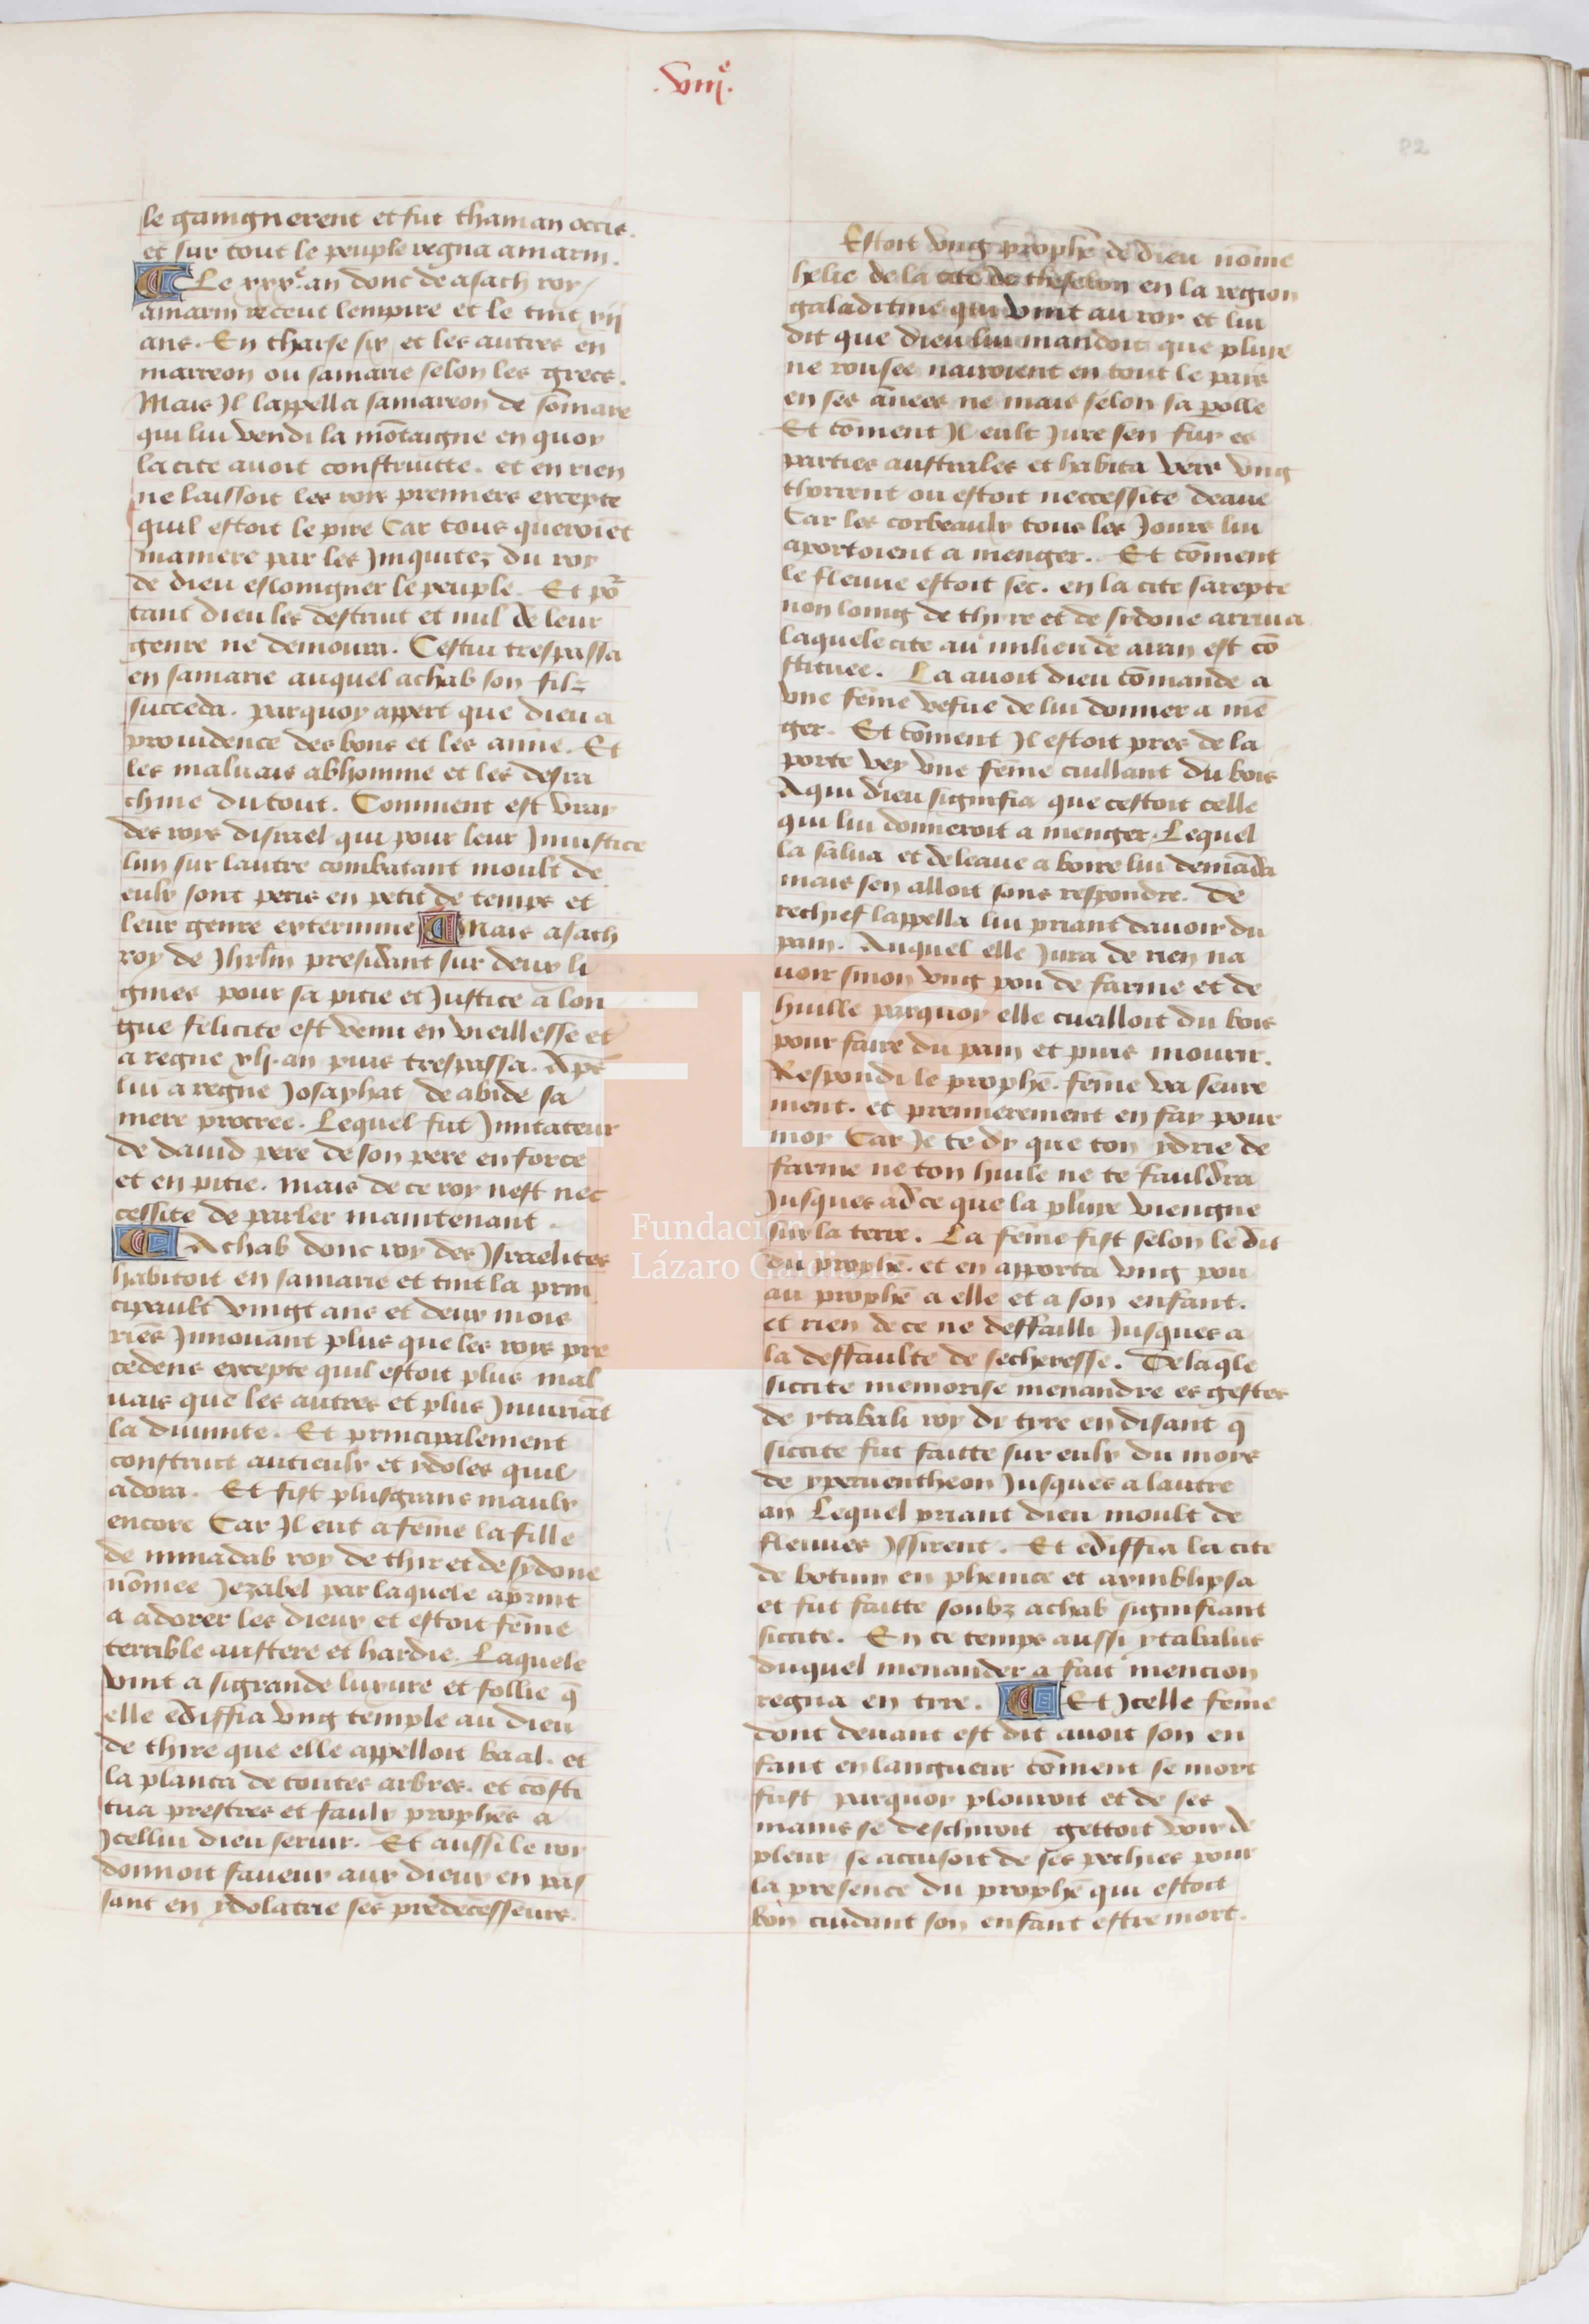 .viijᵉ.
82
le gaingnerent et fut thaman occis.
et sur tout le peuple regna amarin.
Le xxxᵉ. an donc de asach roy
amarin receut lempire et le tint xij
ans. En tharse six et les autres en
marreon ou samarie selon les grecs.
Mais Il lappella samareon de somare
qui lui vendi la mōtaigne en quoy
la cite auoit construitte. et en rien
ne laissoit les rois premiers excepte
quil estoit le pire Car tous queroiēt
maniere par les Iniquitez du roy
de dieu eslongner le peuple. Et po᷑
tant dieu les destruit et nul de leur
genre ne demoura. Cestui trespassa
en samarie auquel achab son filz
succeda. parquoy appert que dieu a
prouidence des bons et les aime. Et
les maluais abhomine et les desra
chine du tout. Comment est vray
des roys disrael qui pour leur Iniustice
lun sur lautre combatant moult de
eulx sont peris en petit de temps et
leur genre extermine Mais asach
roy de Jhrlm presidant sur deux li
gnies pour sa pitie et Iustice a lon
gue felicite est venu en vieillesse et
a regne xlj. an puis trespassa. Apēs
lui a regne Josaphat de abide sa
mere procree. Lequel fut Imitateur
de dauid pere de son pere en force
et en pitie. mais de ce roy nest nec
cessite de parler maintenant.
Achab donc roy des Israelites
habitoit en samarie et tint la prin
cipault vingt ans et deux mois
riēs Innouant plus que les roys pre
cedens excepte quil estoit plus mal
uais que les autres et plus Iniuriāt
la diuinite. Et principalement
construit autieulx et ydoles quil
adora. Et fist plusgrans maulx
encore Car Il eut a fēme la fille
de minadab roy de thir et de sydone
nōmee Jezabel par laquele aprint
a adorer les dieux et estoit fēme
terrible austere et hardie. Laquele
vint a sigrande luxure et follie q̄
elle ediffia vng temple au dieu
de thire que elle appelloit baal. et
la planta de toutes arbres. et cōsti
tua prestres et faulx prophēs a
Icellui dieu seruir. Et aussi le roy
donnoit faueur aux dieux en pas
sant en ydolatrie ses predecesseurs.
Estoit vng prophē de dieu nōme
helie de la cite de thesebon en la region
galaditine qui vint au roy et lui
dit que dieu lui mandoit que pluye
ne rousee nairoient en tout le pais
en ses ānees ne mais selon sa polle
Et cōment Il eult Jure sen fuy es
parties australes et habita vers vng
thorrent ou estoit neccessite deaue
Car les corbeaulx tous les Jours lui
aportoient a menger. Et cōment
le fleuue estoit sec. en la cite sarepte
non loing de thyre et de sydone arriua
laquele cite au milieu de aran est cō
stituee. La auoit dieu cōmande a
vne fēme vefue de lui donner a mē
ger. Et cōment Il estoit pres de la
porte vey vne fēme cuillant du bois
A qui dieu signifia que cestoit celle
qui lui donneroit a menger. Lequel
la salua et de leaue a boire lui demāda
mais sen alloit sans respondre. de
rechief lappella lui priant dauoir du
pain. Auquel elle Jura de rien na
uoir sinon vng pou de farine et de
huille parquoy elle cueilloit du bois
pour faire du pain et puis mourir.
Respondi le prophē. fēme va seure
ment. et premierement en fay pour
moy Car Je te dy que ton ydrie de
farine ne ton huile ne te fauldra
Jusques ad ce que la pluye viengne
sur la terre. La fēme fist selon le dit
du prophē. et en apporta vng pou
au prophē a elle et a son enfant.
et rien de ce ne deffailli Jusques a
la deffaulte de secheresse. De laq̄le
siccite memorise menandre es gestes
de ytabali roy de tyre en disant q̄
siccite fut faitte sur eulx du mois
de yperuentheon Jusques a lautre
an Lequel priant dieu moult de
fleuues Issirent. Et ediffia la cite
de botuin en phenice et armblipsa
et fut faitte soubz achab signifiant
siccite. En ce temps aussi ytabalus
duquel menander a fait mencion
regna en tyre. Et Icelle fēme
dont deuant est dit auoit son en
fant en langueur cōment se mort
fust parquoy plouroit et de ses
mains se deschiroit gettoit voix de
pleur se accusoit de ses pechies pour
la presence du prophē qui estoit
bon cuidant son enfant estre mort.
Fundación
Lázaro Galdiano
FLG